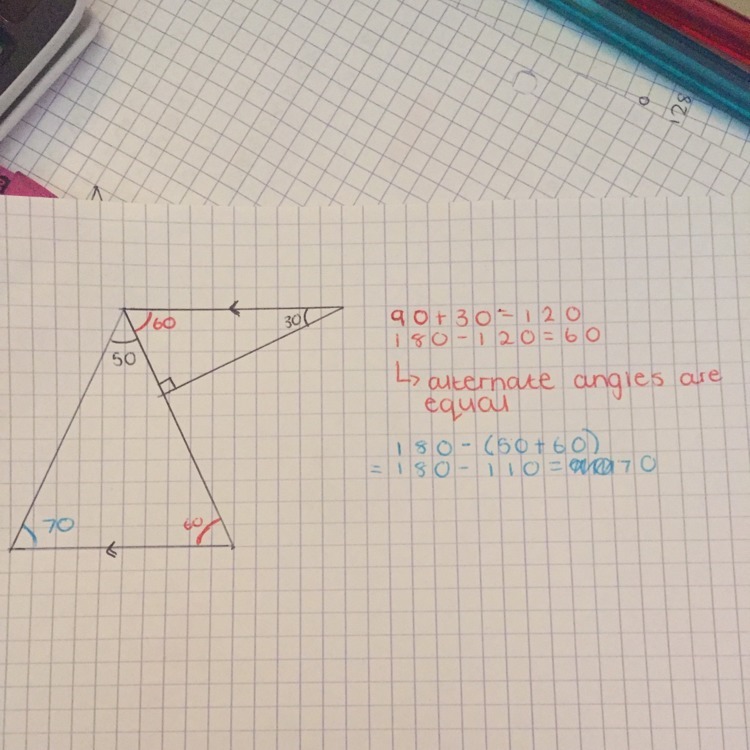 0
128
60
30
50
70
60
90+30=120
180-120=60
↳ alternate angles are
equal
180-(50+60)
=180-110=70